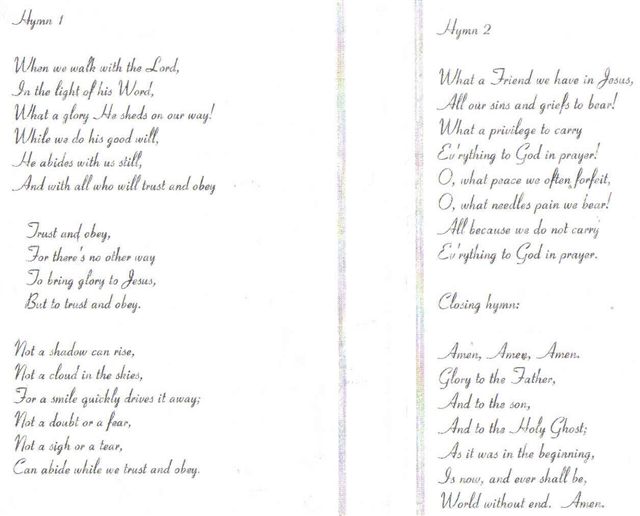 Hymn 1
When we walk with the Lord,
In the light of his Word,
What a glory He sheds on our way!
While we do his good will,
He abides with us still,
And with all who will trust and obey
Trust and obey,
For there's no other way
To bring glory to Jesus,
But to trust and obey.
Not a shadow can rise,
Not a cloud in the skies,
For a smile quickly drives it away;
Not a doubt or a fear,
Not a sigh or a tear,
Can abide while we trust and obey.
Hymn 2
What a Friend we have in Jesus,
All our sins and griefs to bear!
What a privilege to carry
Ev'rything to God in prayer!
O, what peace we often forfeit,
O, what needles pain we bear!
All because we do not carry
Ev'rything to God in prayer.
Closing hymn:
Amen, Amen, Amen.
Glory to the Father,
And to the son,
And to the Holy Ghost;
As it was in the beginning,
Is now, and ever shall be,
World without end. Amen.